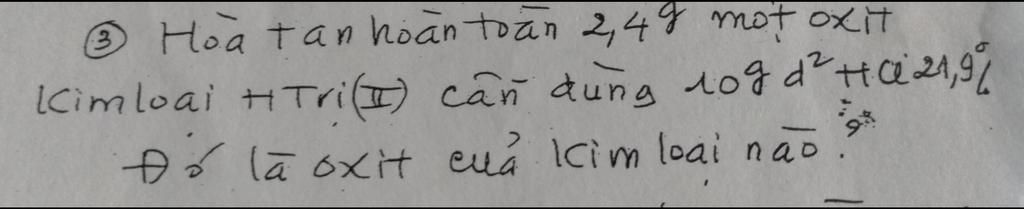 ③ Hòa tan hoàn toàn 2,4g một oxit
kim loại H Trị (II) cần dùng 10g d² HCl 21,9%
Đó là oxit của kim loại nào?